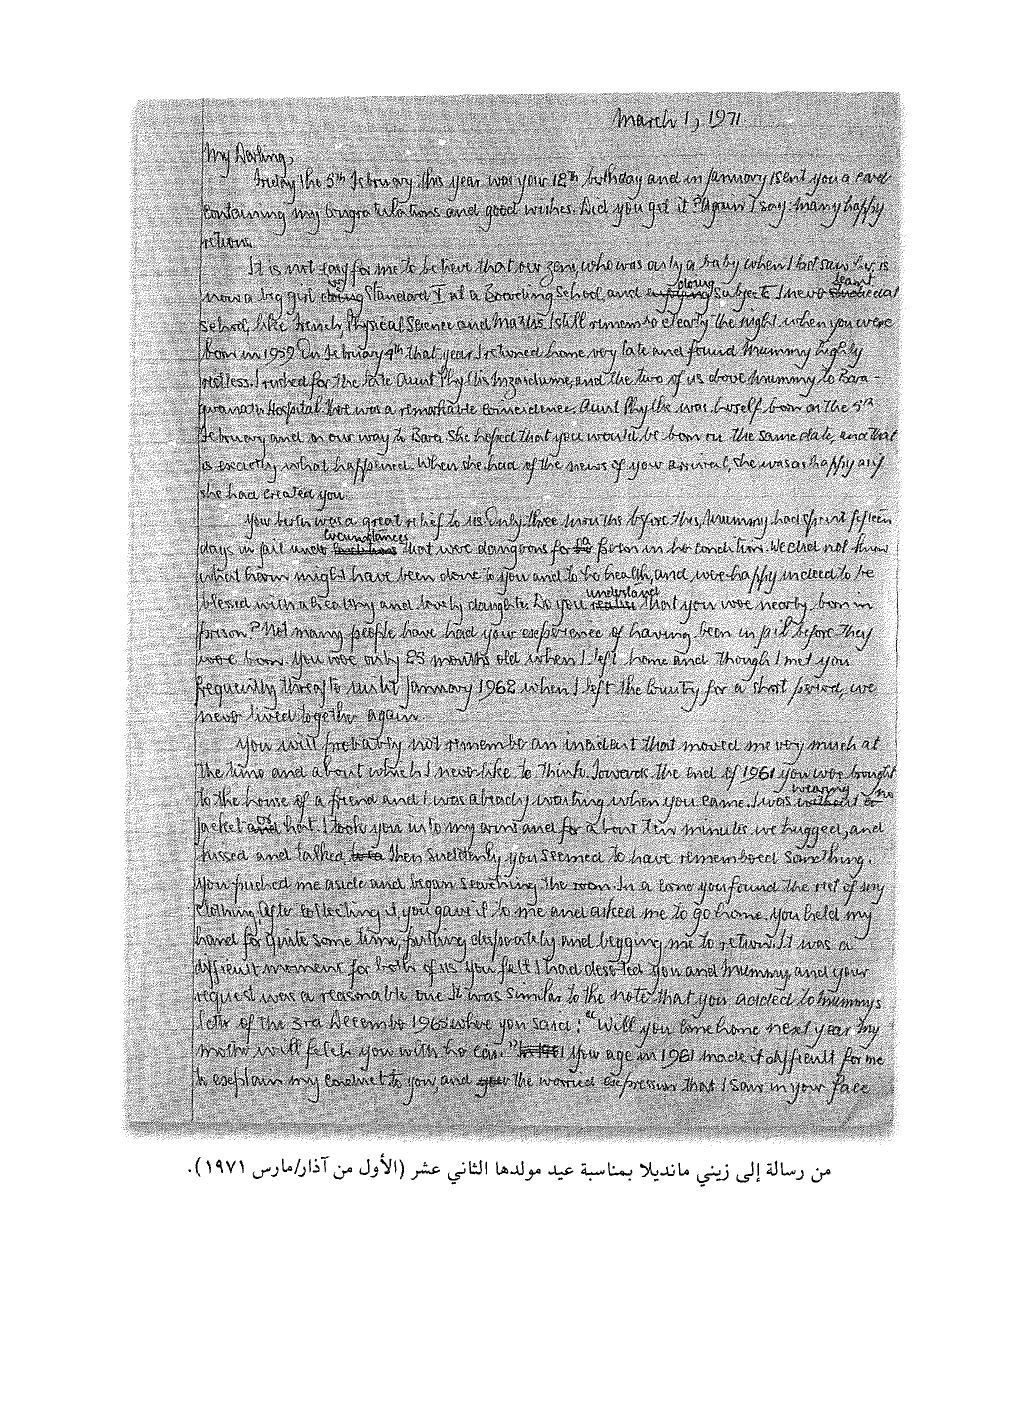 March 1, 1971
My Darling,
Friday the 5th February this year was your 12th birthday and in January I sent you a card
containing my congratulations and good wishes. Did you get it? Again I say: many happy
returns.
It is not easy for me to believe that our Zeni, who was only a baby when I last saw her, is
in
now a big girl doing Standard V at a Boarding School, and doing subjects I never learnt at
school, like French, Physical Science and Maths. I still remember clearly the night when you were
born in 1959. On February 4th that year I returned home very late and found Mummy highly
restless. I rushed for the late Aunt Phyllis Mzaidume, and the two of us drove Mummy to Bara-
gwanath Hospital. There was a remarkable coincidence. Aunt Phyllis was herself born on the 5th
February and on our way to Bara she hoped that you would be born on the same date, and that
is exactly what happened. When she had of the news of your arrival, she was as happy as if
she had created you.
Your birth was a great relief to us. Only three months before this, Mummy had spent fifteen
circumstances
days in jail under that were dangerous for a person in her condition. We did not know
what harm might have been done to you and to her health, and were happy indeed to be
understand
blessed with a healthy and lovely daughter. Do you realise that you were nearly born in
prison? Not many people have had your experience of having been in jail before they
were born. You were only 25 months old when I left home and though I met you
frequently thereafter until January 1962 when I left the country for a short period, we
never lived together again.
You will probably not remember an incident that moved me very much at
the time and about which I never like to think. Towards the end of 1961 you were brought
wearing no
to the house of a friend and I was already waiting when you came. I was
or
jacket and hat. I took you into my arms and for about ten minutes we hugged, and
kissed and talked. Then suddenly you seemed to have remembered something.
You pushed me aside and began searching the room. In a corner you found the rest of my
clothing. After collecting it, you gave it to me and asked me to go home. You held my
hand for quite some time, pulling desperately and begging me to return. It was a
difficult moment for both of us. You felt I had deserted you and Mummy, and your
request was a reasonable one. It was similar to the note that you added to Mummy's
letter of the 3rd December 1965 where you said: "Will you come home next year. My
mother will fetch you with her car." Your age in 1961 made it difficult for me
to explain my conduct to you, and the worried expression that I saw in your face
من رسالة إلى زيني مانديلا بمناسبة عيد مولدها الثاني عشر (الأول من آذار/مارس ١٩٧١).